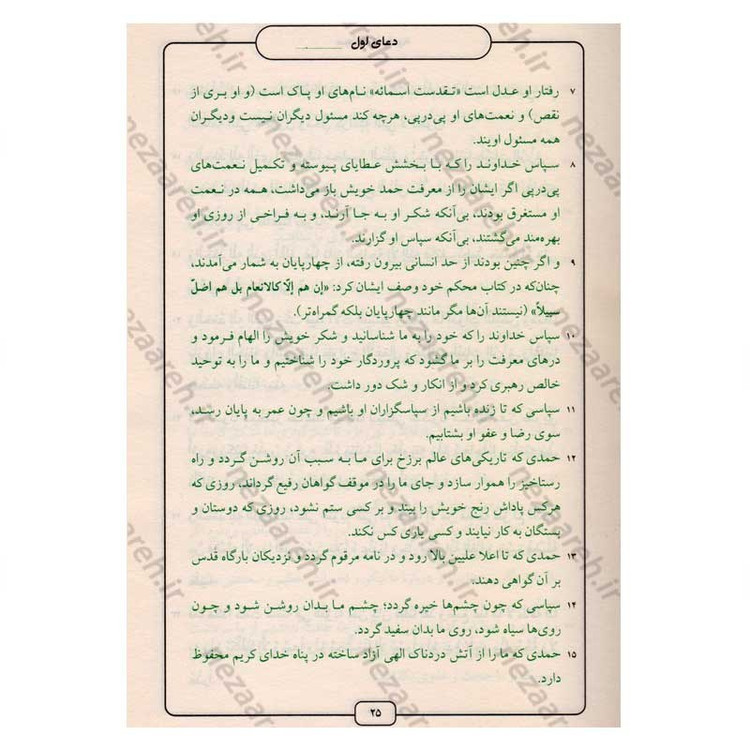 دعای اول
۷ رفتار او عدل است «تقدست اسمائه» نام‌های او پاک است (و او بری از
نقص) و نعمت‌های او پی‌درپی، هرچه کند مسئول دیگران نیست ودیگران
همه مسئول اویند.
۸ سپاس خداوند را که با بخشش عطایای پیوسته و تکمیل نعمت‌های
پی‌درپی اگر ایشان را از معرفت حمد خویش باز می‌داشت، همه در نعمت
او مستغرق بودند، بی‌آنکه شکر او به جا آرند، و به فراخی از روزی او
بهره‌مند می‌گشتند، بی‌آنکه سپاس او گزارند.
۹ و اگر چنین بودند از حد انسانی بیرون رفته، از چهارپایان به شمار می‌آمدند،
چنان‌که در کتاب محکم خود وصف ایشان کرد: «إن هم إلّا کالانعام بل هم اضلّ
سبیلاً» (نیستند آن‌ها مگر مانند چهارپایان بلکه گمراه‌تر).
۱۰ سپاس خداوند را که خود را به ما شناسانید و شکر خویش را الهام فرمود و
درهای معرفت را بر ما گشود که پروردگار خود را شناختیم و ما را به توحید
خالص رهبری کرد و از انکار و شک دور داشت.
۱۱ سپاسی که تا زنده باشیم از سپاسگزاران او باشیم و چون عمر به پایان رسد،
سوی رضا و عفو او بشتابیم.
۱۲ حمدی که تاریکی‌های عالم برزخ برای ما به سبب آن روشن گردد و راه
رستاخیز را هموار سازد و جای ما را در موقف گواهان رفیع گرداند، روزی که
هرکس پاداش رنج خویش را بیند و بر کسی ستم نشود، روزی که دوستان و
بستگان به کار نیایند و کسی یاری کس نکند.
۱۳ حمدی که تا اعلا علیین بالا رود و در نامه مرقوم گردد و نزدیکان بارگاه قدس
بر آن گواهی دهند.
۱۴ سپاسی که چون چشم‌ها خیره گردد؛ چشم ما بدان روشن شود و چون
روی‌ها سیاه شود، روی ما بدان سفید گردد.
۱۵ حمدی که ما را از آتش دردناک الهی آزاد ساخته در پناه خدای کریم محفوظ
دارد.
۲۵
nezaareh.ir